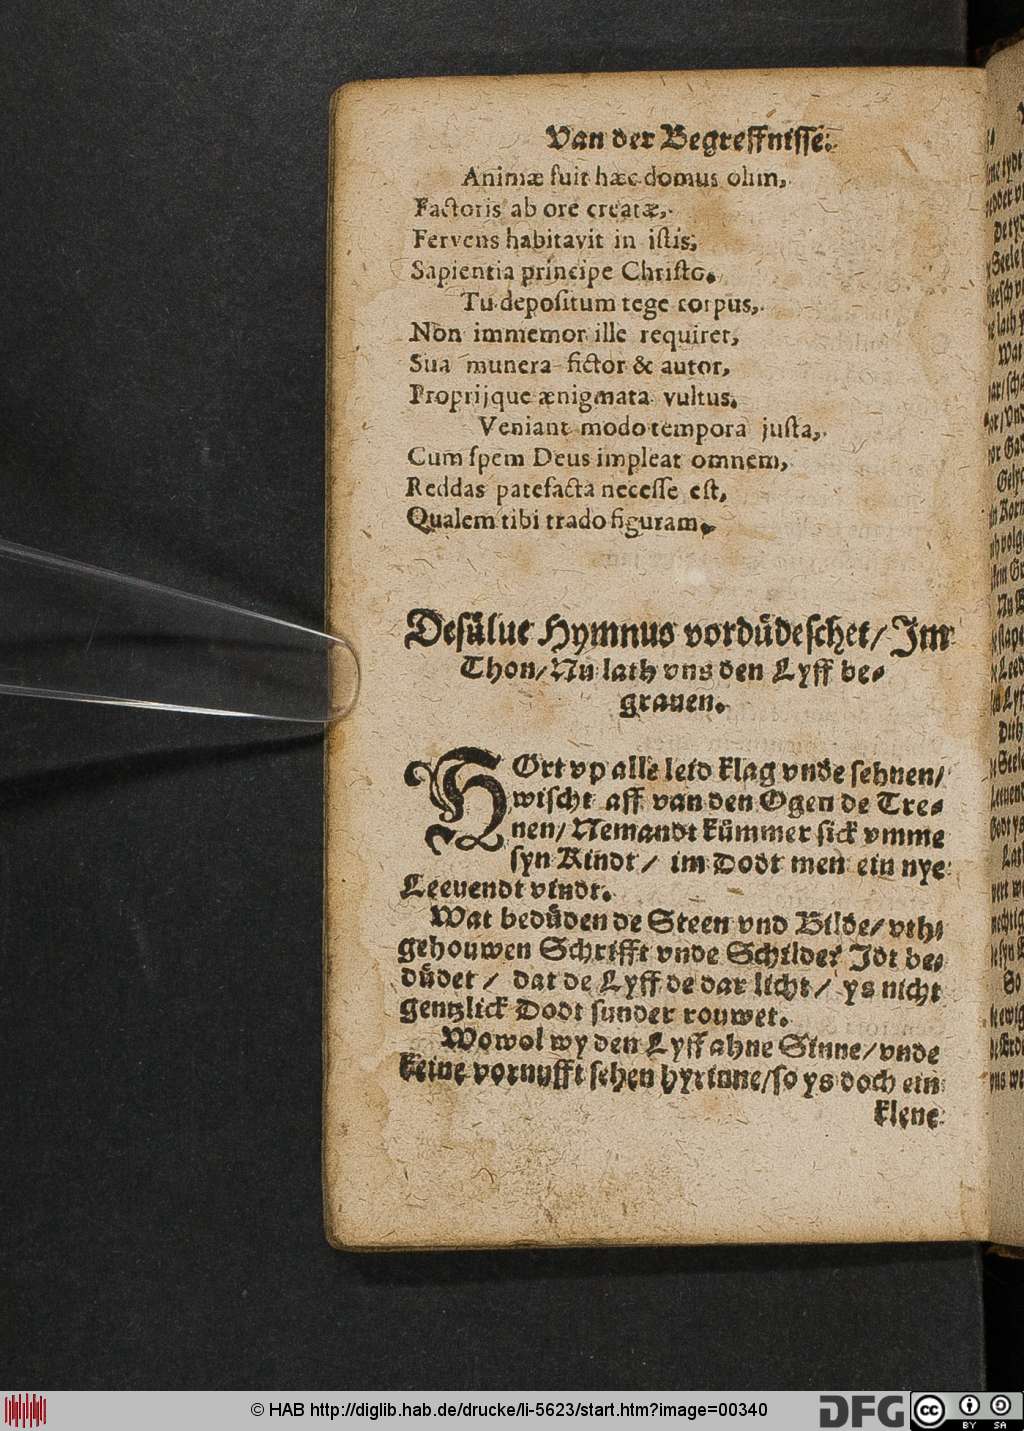 Van der Begreffnisse.
Animæ fuit hæc domus olim,
Factoris ab ore creatæ,
Fervens habitavit in istis,
Sapientia principe Christo.
Tu depositum tege corpus,
Non immemor ille requiret,
Sua munera fictor & autor,
Proprijque ænigmata vultus.
Veniant modo tempora justa,
Cum spem Deus impleat omnem,
Reddas patefacta necesse est,
Qualem tibi trado figuram.
Desülue Hymnus vordüdeschet / Im
Thon / Nu lath vns den Lyff be-
grauen.
HOrt vp alle leid klag vnde sehnen /
wischt aff van den Ogen de Tre-
nen / Nemandt kümmer sick vmme
syn Kindt / im Dodt men ein nye
Leeuendt vindt.
Wat bedüden de Steen vnd Bilde / vth-
gehouwen Schrifft vnde Schilde? Idt be-
düdet / dat de Lyff de dar licht / ys nicht
gentzlick Dodt sunder rouwet.
Wowol wy den Lyff ahne Sinne / vnde
keine vornufft sehen hyrinne / so ys doch ein
klene
© HAB http://diglib.hab.de/drucke/li-5623/start.htm?image=00340
DFG
cc
BY SA